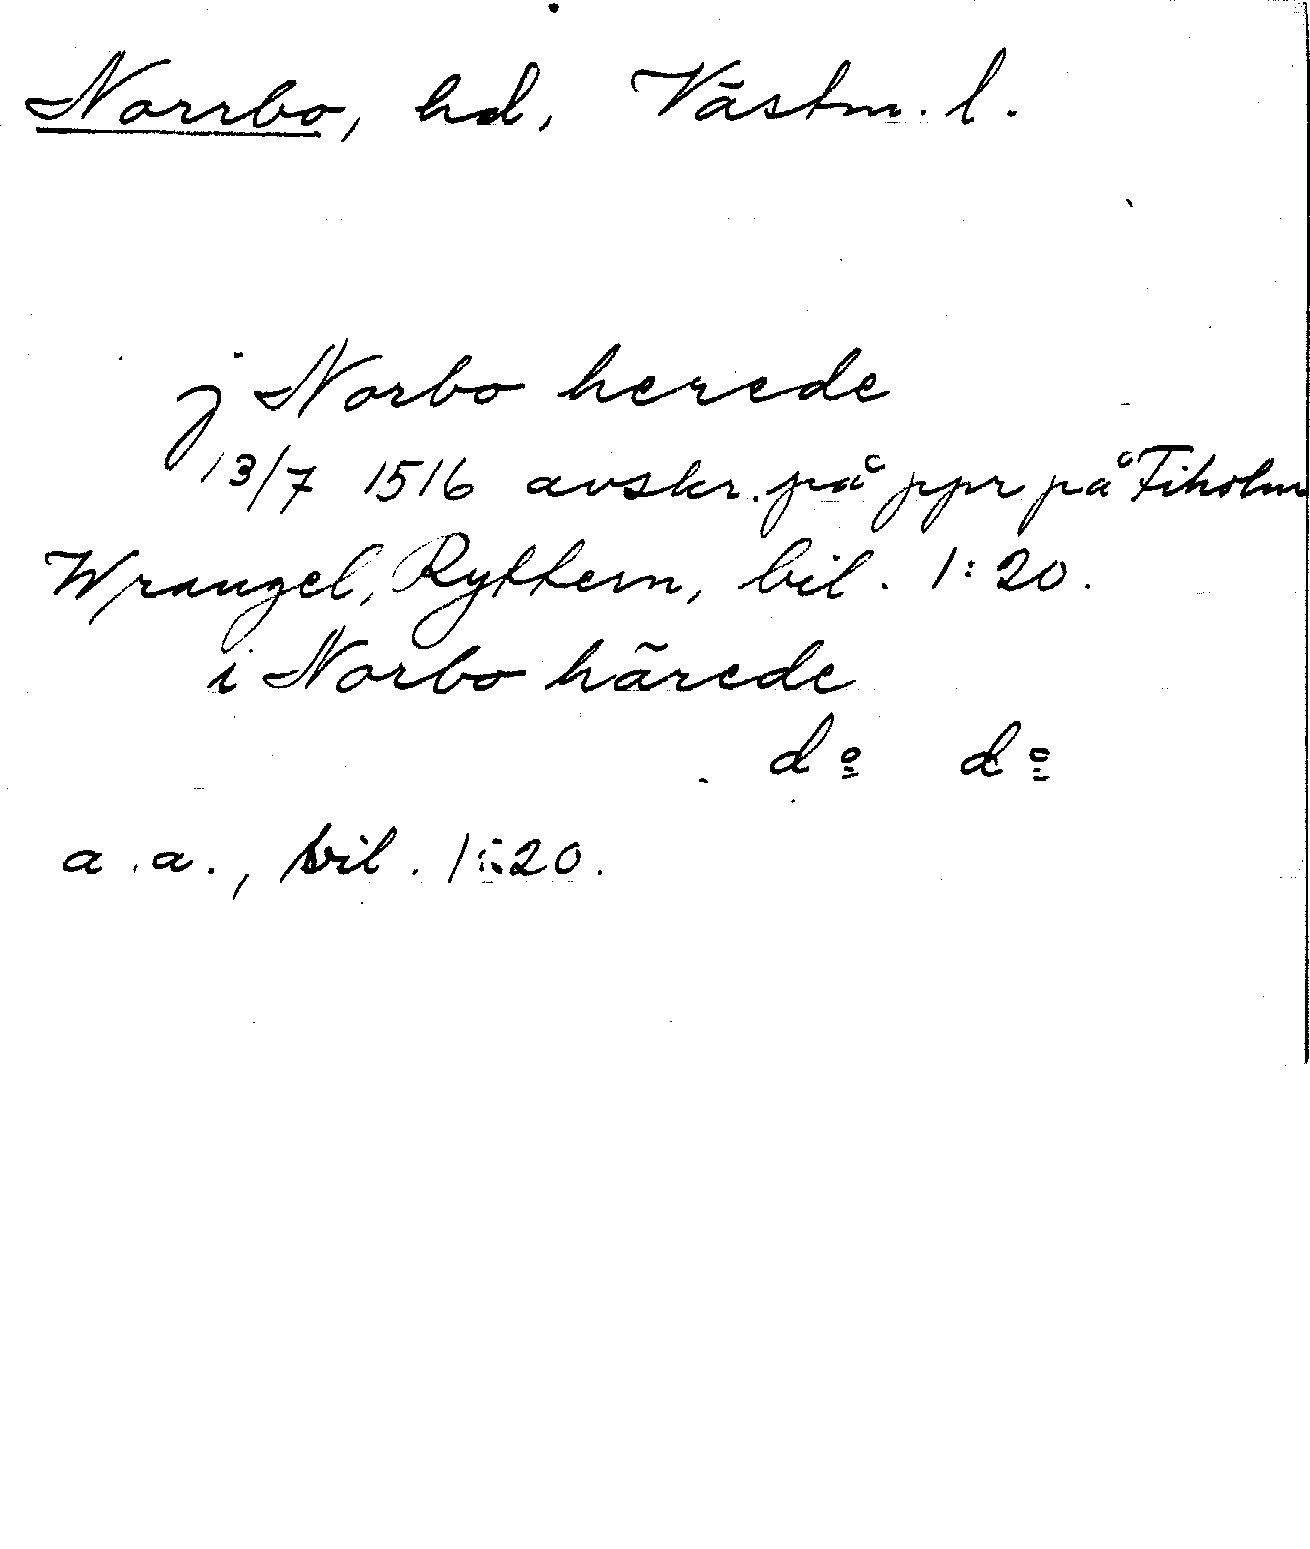 Norrbo, hd, Västm. l.
j Norbo herede
13/7 1516 avskr. på ppr på Fiholm
Wrangel, Ryttern, bil. 1:20.
i Norbo härede
do do
a.a., bil. 1:20.